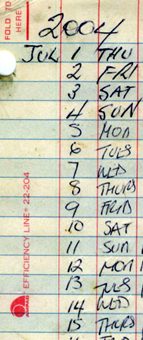 FOLD TO
HERE
2004
JUL 1 THU
2 FRI
3 SAT
4 SUN
5 MON
6 TUES
7 WED
8 THURS
9 FRID
10 SAT
11 SUN
12 MON
13 TUES
14 WED
15 THURS
EFFICIENCY LINE® 22-204